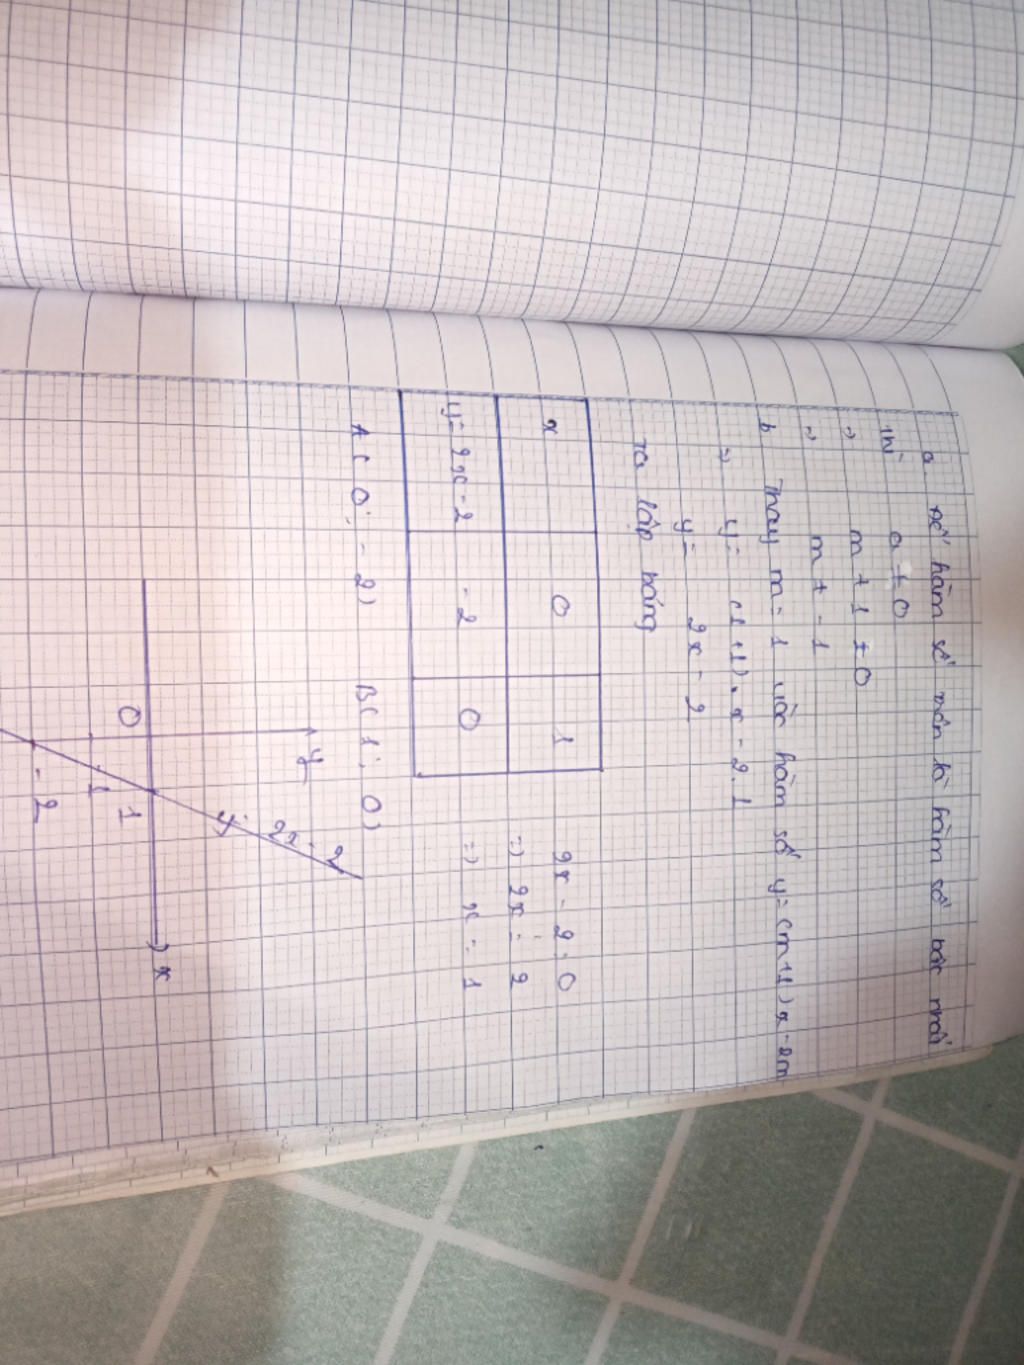 a Để hàm số trên là hàm số bậc nhất
thì a ≠ 0
=> m + 1 ≠ 0
=> m ≠ -1
b Thay m = 1 vào hàm số y = (m+1)x - 2m
=> y = (1+1).x - 2.1
y = 2x - 2
Ta lập bảng
x 0 1
y = 2x - 2 -2 0
2x - 2 = 0
=> 2x = 2
=> x = 1
A ( 0 ; - 2) B( 1 ; 0)
y
y = 2x - 2
O 1 x
-1
-2